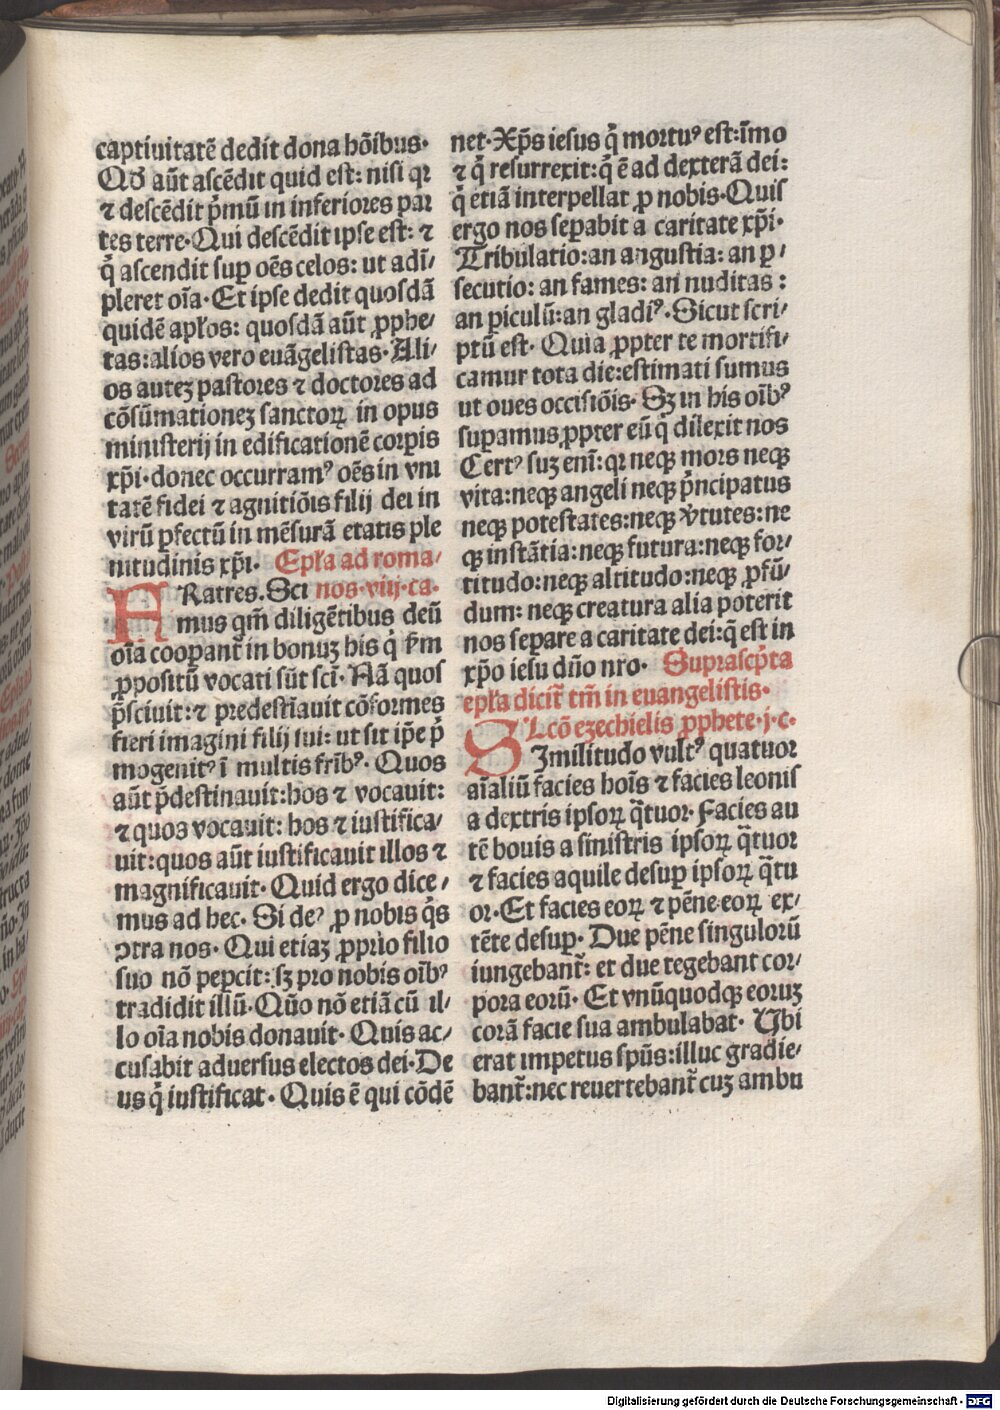 captiuitatē dedit dona hoĩbus·
Qđ aũt ascēdit quid est: nisi qꝛ
⁊ descēdit p̍mũ in inferiores par
tes terre·Qui descēdit ipse est: ⁊
q̍ ascendit suꝑ oēs celos: ut adĩ/
pleret oĩa·Et ipse dedit quosdã
quidē apłos: quosdã aũt ꝓphe/
tas:alios vero euãgelistas·Ali/
os auteꝫ pastores ⁊ doctores ad
cõsũmationeꝫ sanctoꝝ in opus
ministerij in edificationē corꝑis
xp̄i·donec occurramꝰ oēs in vni
tatē fidei ⁊ agnitiõis filij dei in
virũ ꝑfectũ in mēsurã etatis ple
nitudinis xp̄i· Epła ad roma/
FRatres. Sci nos·viij·ca·
mus qm̄ diligētibus deũ
oĩa cooꝑant̃ in bonuꝫ his q̍ ẜm
ꝓpositũ vocati sũt sc̄i· Nã quos
p̄sciuit:⁊ predestĩauit cõformes
fieri imagini filij sui: ut sit ip̄e p̍
mogenitꝰ ĩ multis fr̄ibꝰ· Quos
aũt p̄destinauit:hos ⁊ vocauit:
⁊ quos vocauit: hos ⁊ iustifica/
uit:quos aũt iustificauit illos ⁊
magnificauit· Quid ergo dice/
mus ad hec· Si deꝰ ꝓ nobis q̍s
ꝯtra nos· Qui etiaꝫ ꝓprio filio
suo nõ peꝑcit: sꝫ pro nobis oĩbꝰ
tradidit illũ·Quõ nõ etiã cũ il/
lo oĩa nobis donauit· Quis ac/
cusabit aduersus electos dei·De
us q̍ iustificat· Quis ē qui cõdē
net·Xp̄s iesus q̍ mortuꝰ est:ĩmo
⁊ q̍ resurrexit:q̍ ē ad dexterã dei:
q̍ etiã interpellat ꝓ nobis·Quis
ergo nos seꝑabit a caritate xp̄i·
Tribulatio:an angustia: an ꝑ/
secutio: an fames: an nuditas :
an ꝑiculũ:an gladiꝰ·Sicut scri/
ptũ est· Quia ꝓpter te mortifi/
camur tota die:estimati sumus
ut oues occisiõis· Sꝫ in his oĩbꝰ
suꝑamus ꝓpter eũ q̍ dilexit nos
Certꝰ suꝫ enĩ: qꝛ neqꝫ mors neqꝫ
vita:neqꝫ angeli neqꝫ p̍ncipatus
neqꝫ potestates:neqꝫ v̍tutes:ne
qꝫ instãtia:neqꝫ futura:neqꝫ for/
titudo:neqꝫ altitudo:neqꝫ ꝓfũ/
dum: neqꝫ creatura alia poterit
nos seꝑare a caritate dei:q̄ est in
xp̄o iesu dño nro· Suprascp̍ta
epła dicit̃ tm̄ in euangelistis·
SLcõ ezechielis ꝓphete·j·c·
Imilitudo vultꝰ quatuor
aĩaliũ facies hoĩs ⁊ facies leonis
a dextris ipsoꝝ q̃tuor· Facies au
tē bouis a sinistris ipsoꝝ q̃tuor
⁊ facies aquile desuꝑ ipsoꝝ q̃tu
or·Et facies eoꝝ ⁊ pēne eoꝝ ex/
tēte desuꝑ· Due pēne singulorũ
iungebant̃: et due tegebant cor/
pora eorũ· Et vnũquodqꝫ eoruꝫ
corã facie sua ambulabat· Vbi
erat impetus sp̄us:illuc gradie/
bant̃:nec reuertebant̃ cuꝫ ambu
Digitalisierung gefördert durch die Deutsche Forschungsgemeinschaft · DFG